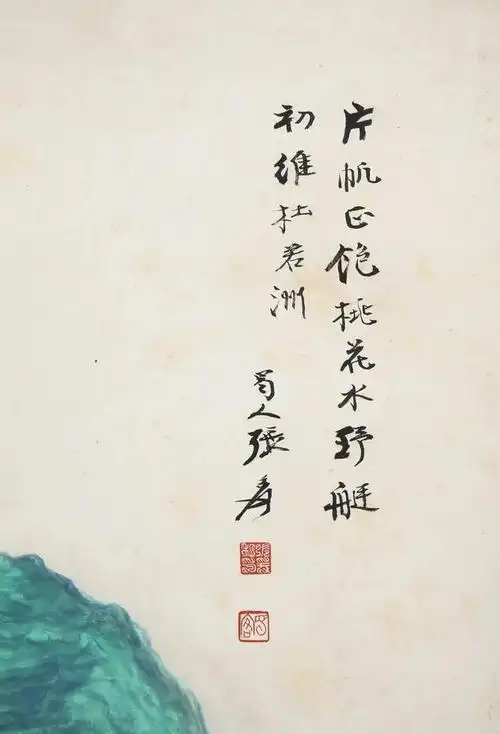 片帆正飽桃花水野艇
初維杜若洲
蜀人張爰